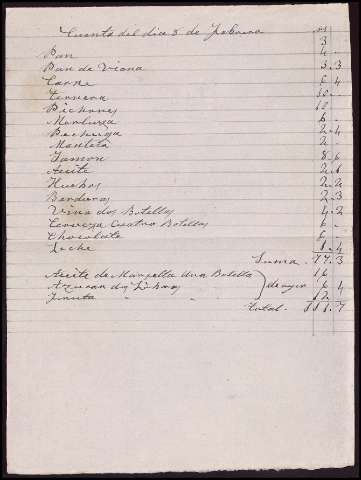 Cuenta del dia 8 de Febrero rs
3
Pan 4 -
Pan de Viena 3 . 3
Carne 6 4
Ternera 10 -
Pichones 10 -
Merluza 6 -
2 - 4
Manteca 2 -
Jamon 8 . 6
Aceite 2 . 6
Huebos 2 . 2
Berduras 2 . 3
Vino dos Botellas 4 . 2
Cerveza Cuatro Botellas 6 -
Chocolate 6 -
Leche 1 . 4
Suma . 77 . 3
Aceite de Marsella una Botella 16
Azucar dos Libras de ayer 6 4
Fruta " " 12
Total . 111 . 7